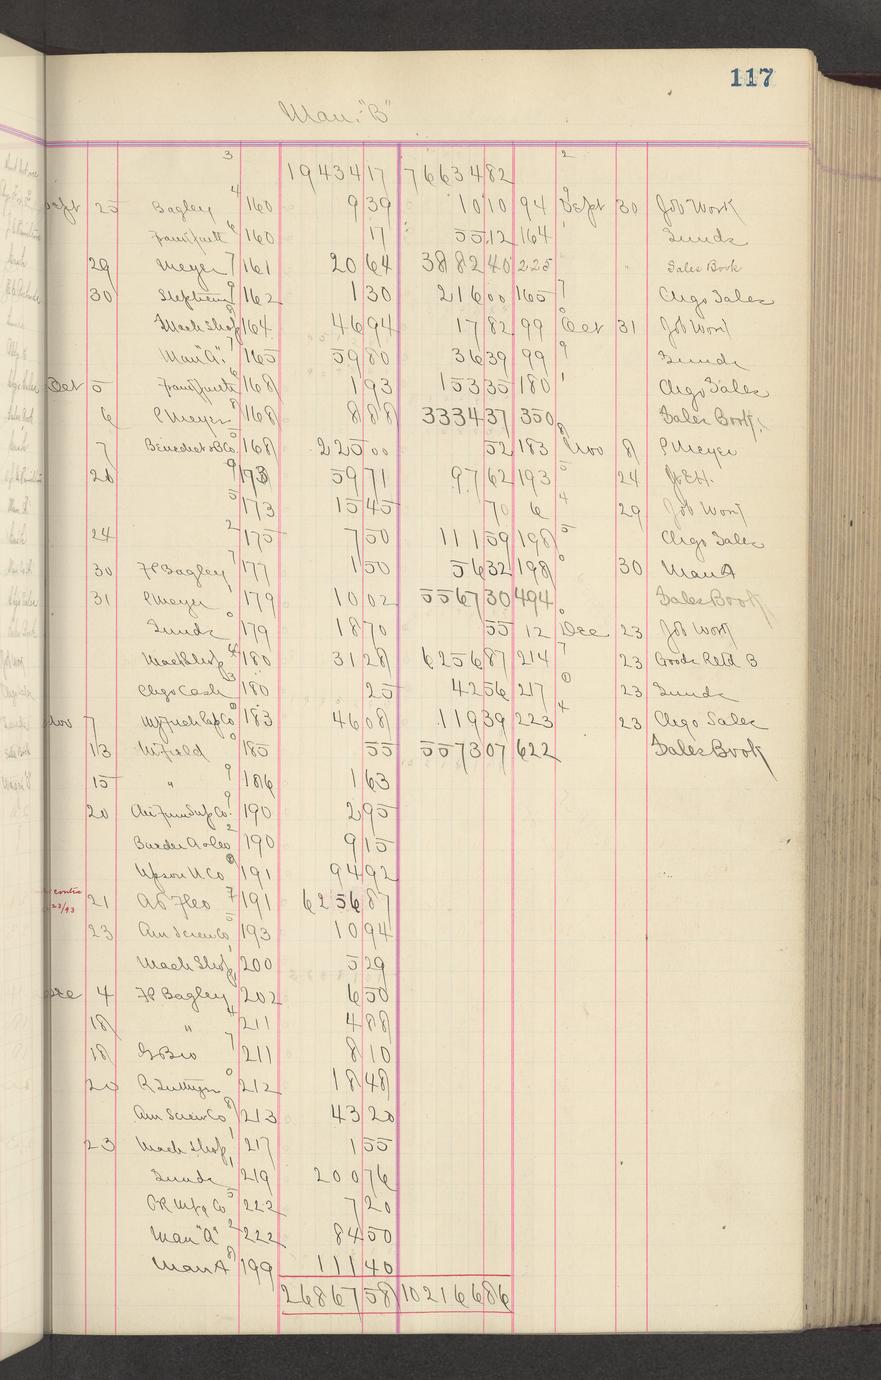 117
Man. "B"
3 19434 17 76634 82 2
Sept 25 Bagley 4 160 9 39 10 10 94 9 Sept 30 Job Work
160 17 55 12 164 Sunds
29 Meyer 7 161 20 64 3882 40 225 " Sales Book
30 Stephens 9 162 1 30 216 00 165 7 Chgo Sales
Mach Shop 8 164 46 94 17 82 99 0 Oct 31 Job Work
Man "A" 7 165 59 80 36 39 99 9 Sunds
Oct 5 6 168 1 93 153 35 180 1 Chgo Sales
6 P Meyer 8 168 8 88 3334 37 350 Sales Book
7 Benedict & B Co 5 168 225 00 52 183 8 Nov 8 P Meyer
26 9 173 59 71 97 62 193 5 24
5 173 15 45 70 6 4 29 Job Work
24 2 175 7 50 111 59 198 5 Chgo Sales
30 F P Bagley 7 177 1 50 56 32 198 0 30 Man A
31 P Meyer 1 179 10 02 5567 30 494 Sales Book
Sunds 0 179 18 70 55 12 0 Dec 23 Job Work
Mach Shop 4 180 31 28 6256 87 214 7 23 Goods Retd B
Chgo Cash 3 180 25 42 56 217 0 23 Sunds
Nov 7 183 46 08 119 39 223 4 23 Chgo Sales
13 W Field 0 185 55 5573 07 622 Sales Book
15 " 9 186 1 63
20 9 190 2 95
2 190 9 15
Upson N Co 0 191 94 92
contra 23/93 21 7 191 6256 87
23 Am Screw Co 5 193 10 94
Mach Shop 1 200 5 29
Dec 4 F P Bagley 1 202 6 50
18 " 4 211 4 88
18 G Bro 7 211 8 10
20 0 212 18 48
Am Screw Co 8 213 43 20
23 Mach Shop 1 217 1 55
Sunds 1 219 200 76
O R Mfg Co 5 222 7 20
Man "A" 2 222 84 50
Man A 8 199 111 40
26867 58 102166 86